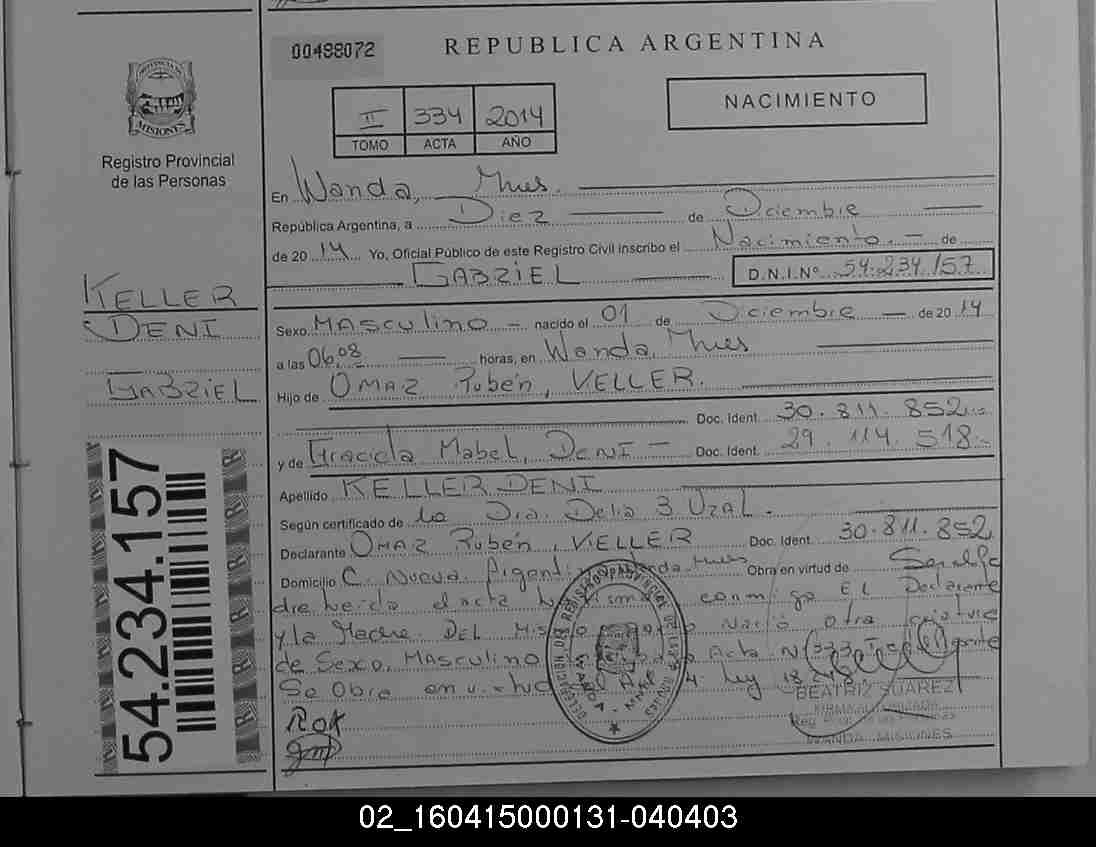 00498072
REPUBLICA ARGENTINA
II 334 2014
TOMO ACTA AÑO
NACIMIENTO
PROVINCIA DE
MISIONES
Registro Provincial
de las Personas
En Wanda, Mnes.
República Argentina, a Diez de Diciembre
de 20 14 Yo, Oficial Público de este Registro Civil inscribo el Nacimiento. - de
GABRIEL D.N.I.Nº 54.234.157
KELLER
DENI
GABRIEL
Sexo MASculino - nacido el 01 de Diciembre de 20 14
a las 06,08 horas, en Wanda, Mnes
Hijo de OMAR Rubén, KELLER.
Doc. Ident. 30.811.852.-
y de Graciela Mabel, DENI - Doc. Ident. 29.114.518.-
Apellido KELLER DENI
Según certificado de la Dra. Delia B UZAL.
Declarante OMAR Rubén, KELLER Doc. Ident 30.811.852
Domicilio C. Nueva Argentina Wanda Mnes Obra en virtud de
acta conmigo EL Declarante
y la Madre. DEL Nació otra
de Sexo. MASculino Acta Nº 333
Se Obra Ley 18248
BEATRIZ SUAREZ
FIRMA AUTORIZADA
WANDA - MISIONES
ROK
54.234.157
02_160415000131-040403